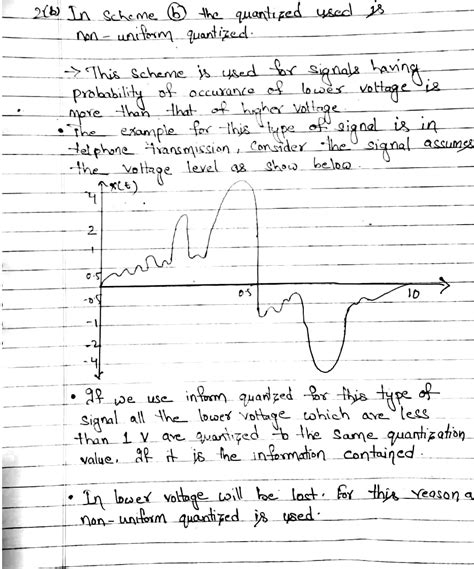 2(b) In scheme (b) the quantized used is
non-uniform quantized.
→ This scheme is used for signals having
probability of occurance of lower voltage is
more than that of higher voltage
• The example for this type of signal is in
telphone transmission, consider the signal assumes
the voltage level as show below.
x(t)
4
2
1
0.5
-0.5
0.5
10
-1
-2
-4
• If we use inform quantized for this type of
signal all the lower voltage which are less
than 1 V are quantized to the same quantization
value. If it is the information contained.
• In lower voltage will be lost. for this reason a
non-uniform quantized is used.